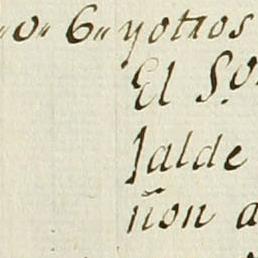 "0" 6" yottos
El S.or
Jalde
ñon a